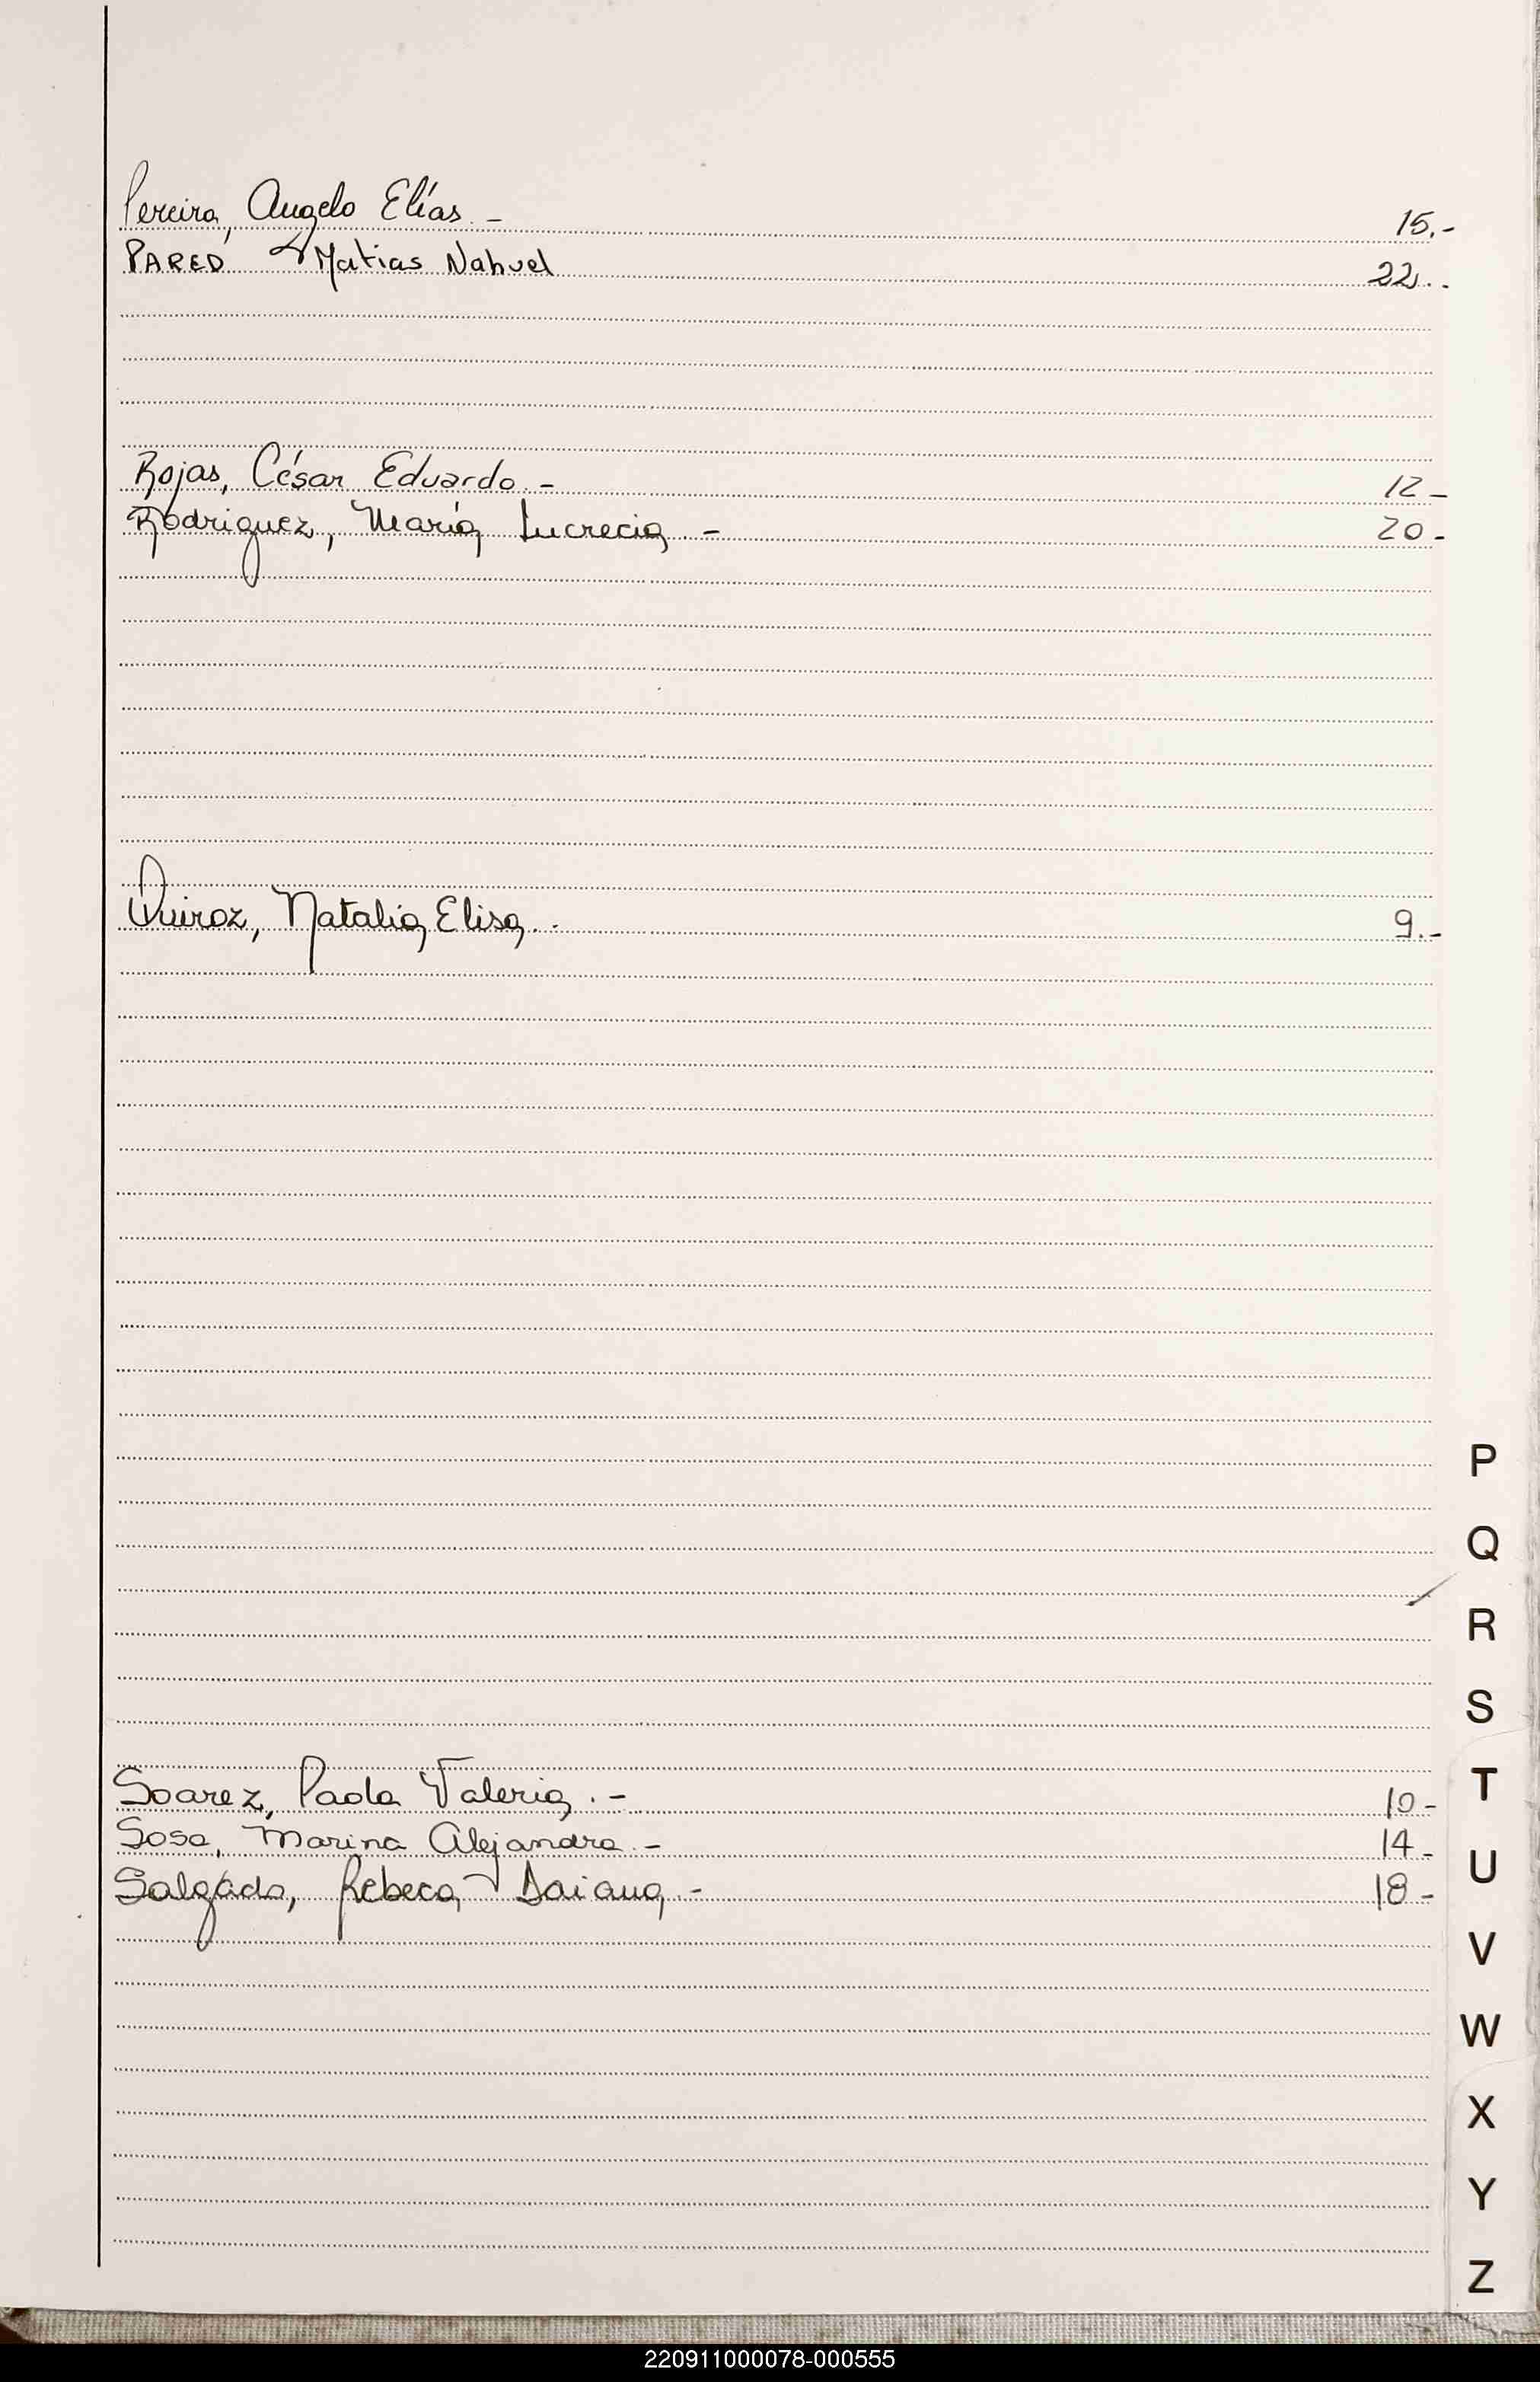 Pereira, Angelo Elías.- 15.-
PARED Matias Nahuel 22..
Rojas, César Eduardo.- 12-
Rodriguez, María Lucrecia.- 20.-
Quiroz, Natalia Elisa.. 9.-
P
Q
R
S
Soarez, Paola Valeria.- 10-
T
Sosa, Marina Alejandra.- 14-
U
Salgado, Rebeca Daiana.- 18-
V
W
X
Y
Z
220911000078-000555